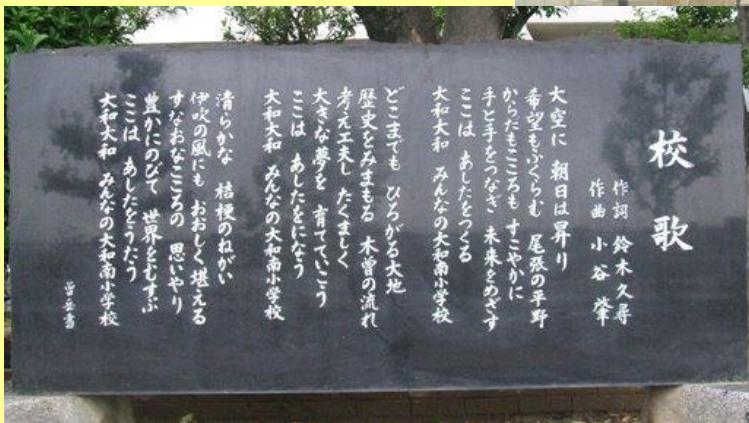 校歌
作詞 鈴木久尋
作曲 小谷肇
大空に 朝日は昇り
希望もふくらむ 尾張の平野
からだもこころも すこやかに
手と手をつなぎ 未来をめざす
ここは あしたをつくる
大和大和 みんなの大和南小学校
どこまでも ひろがる大地
歴史をみまもる 木曽の流れ
考え工夫し たくましく
大きな夢を 育てていこう
ここは あしたをになう
大和大和 みんなの大和南小学校
清らかな 桔梗のねがい
伊吹の風にも おおしく堪える
すなおなこころの 思いやり
豊かにのびて 世界をむすぶ
ここは あしたをうたう
大和大和 みんなの大和南小学校